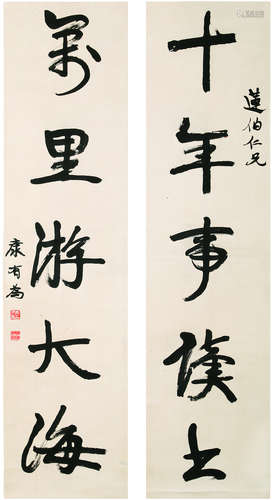 蓮伯仁兄
十年事讀書
萬里游大海
康有為